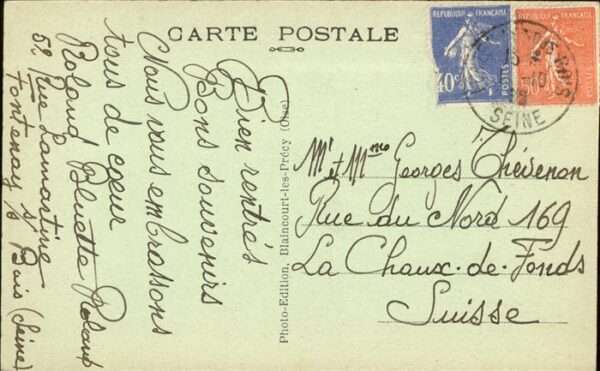 CARTE POSTALE
Bien rentrés
Bons souvenirs
Nous vous embrassons
tous de cœur
Roland Bluette Roland
52 Rue Lamartine
Fontenay s/ Bois (Seine)
Photo-Edition, Blaincourt-les-Précy (Oise)
REPUBLIQUE FRANÇAISE
40c
POSTES
SEINE
Mr et Mme Georges Thévenon
Rue du Nord 169
La Chaux-de-Fonds
Suisse